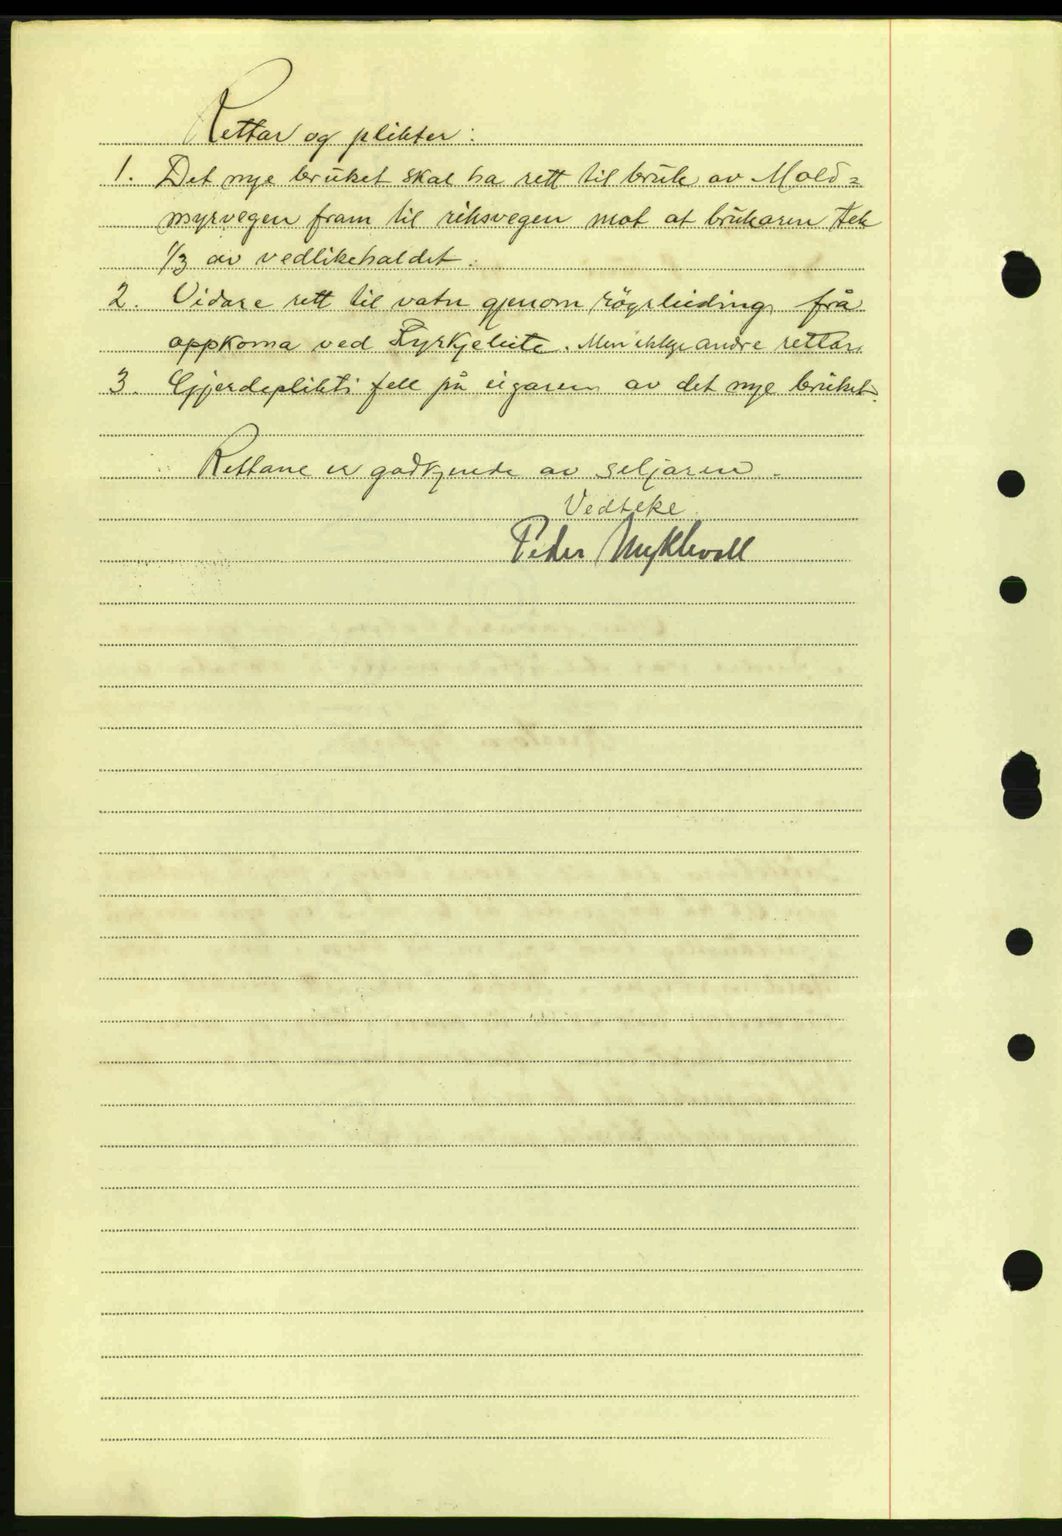 Rettar og plikter:
1. Det nye bruket skal ha rett til bruk av Mold=
myrvegen fram til riksvegen mot at brukaren tek
1/3 av vedlikehaldet.
2. Vidare rett til vatn gjenom röyrleiding frå
oppkoma ved Fyrkjeleite. Men ikkje andre rettar.
3. Gjerdeplikti fell på eigaren av det nye bruket.
Rettane er godkjende av seljaren.
Vedteke
Peder Myklevoll